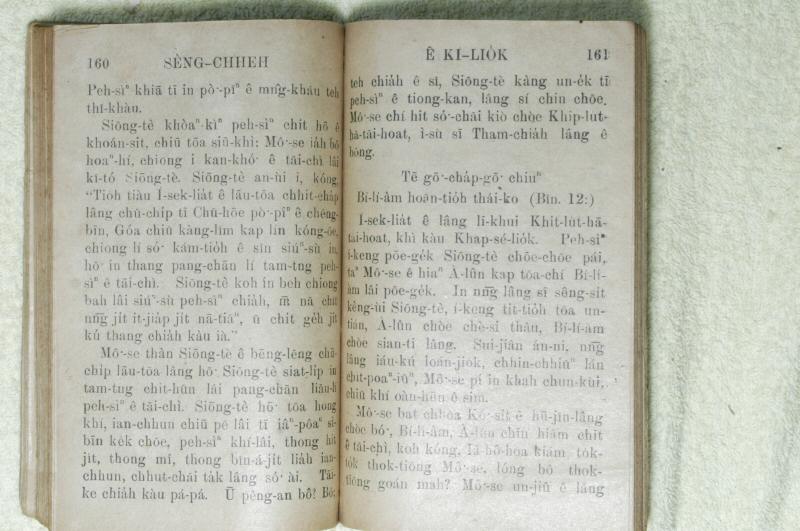 160 SÈNG-CHHEH
Peh-sìⁿ khiā tī in pò͘-pîⁿ ê mn̂g-kháu teh
thî-khàu.
Siōng-tè khòaⁿ-kìⁿ peh-sìⁿ chit hō ê
khoán-sit, chiū tōa siū-khì: Mô͘-se iáh bô
hoaⁿ-hí, chiong i kan-khó͘ ê tāi-chì lâi
kī-tó Siōng-tè. Siōng-tè an-ùi i, kóng,
"Tiòh tiàu Í-sek-liát ê lāu-tōa chhit-cháp
lâng chū-chip tī Chū-hōe pò͘-pîⁿ ê chêng-
bīn, Góa chiū kàng-lîm kap lín kóng-ōe,
chiong lí só͘ kám-tióh ê sîn siúⁿ-sù in,
hō͘ in thang pang-chān lí tam-tng peh-
sìⁿ ê tāi-chì. Siōng-tè koh in beh chiong
bah lâi siúⁿ-sù peh-sìⁿ chiáh, m̄ nā chit
nn̄g jit it-jiáp jit nā-tiāⁿ, ū chit géh jit
kú thang chiáh kàu ià."
Mô͘-se thàn Siōng-tè ê bēng-lēng chū-
chip lāu-tōa lâng hō͘ Siōng-tè siat-lip in
tam-tng chit-hūn lâi pang-chān liāu-lí
peh-sìⁿ ê tāi-chì. Siōng-tè hō͘ tōa hong
khí, ian-chhun chiū pe lâi tī iâⁿ-pôaⁿ sì-
bīn kék chōe, peh-sìⁿ khí-lâi, thong hit
jit, thong mî, thong bîn-á-jit liáh ian-
chhun, chhut-chāi ták lâng só͘ ài. Tāi-
ke chiáh kàu pá-pá. Ū pêng-an bô! Bô:
Ê KI-LIÓK 161
teh chiáh ê sî, Siōng-tè kàng un-ék tī
peh-sìⁿ ê tiong-kan, lâng sí chin chōe.
Mô͘-se chí hit só͘-chāi kiò chòe Khip-lut-
hā-tāi-hoat, ì-sù sī Tham-chiáh lâng ê
bōng.
Tē gō͘-cháp-gō͘ chiuⁿ
Bí-lí-àm hoān-tióh thái-ko (Bîn. 12:)
Í-sek-liát ê lâng lī-khui Khit-lut-hā-
tai-hoat, khì kàu Khap-sé-liók. Peh-sìⁿ
í-keng pōe-gék Siōng-tè chōe-chōe pái,
taⁿ Mô͘-se ê hiaⁿ À-lûn kap tōa-chí Bí-lí-
àm lâi pōe-gék. In nn̄g lâng sī sêng-sit
kèng-ùi Siōng-tè, í-keng tit-tióh tōa un-
tián, À-lûn chòe chè-si thâu, Bí-lí-àm
chòe sian-ti lâng. Sui-jiân án-ni, nn̄g
lâng iáu-kú loán-jiók, chhin-chhiūⁿ lán
chit-poaⁿ-iūⁿ, Mô͘-se pí in khah chun-kùi,
chiū khí oàn-hūn ê sim.
Mô͘-se bat chhōa Kó͘-sit ê hū-jîn-lâng
chòe bó͘, Bí-lí-àm, À-lûn chin hiâm chit
ê tāi-chì, koh kóng, Iâ-hô-hoa kiám ták-
ták thok-tiōng Mô͘-se, lóng bô thok-
tiōng goán mah? Mô͘-se un-jiû ê lâng